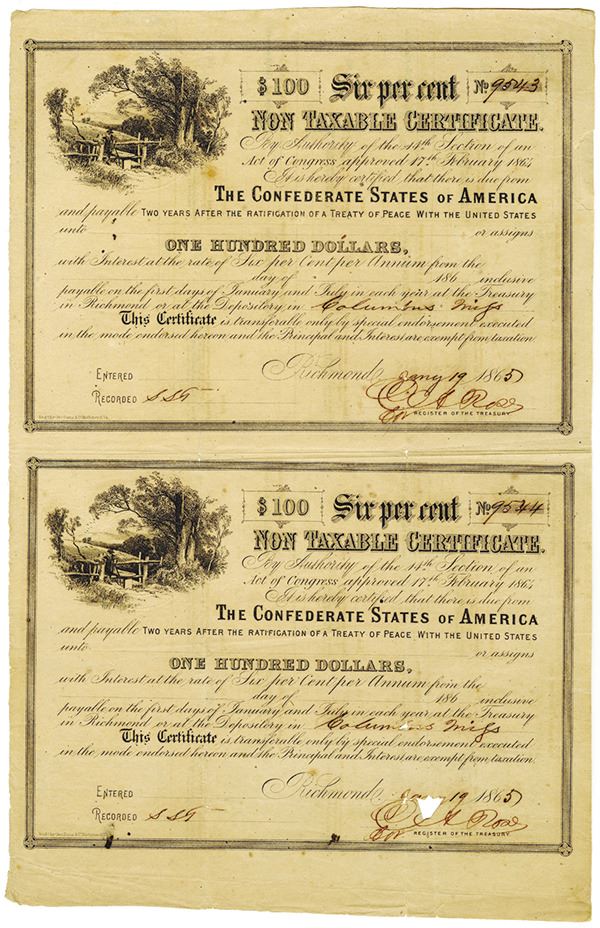 $100 Six per cent No 9543
NON TAXABLE CERTIFICATE.
By Authority of the 14th Section of an
Act of Congress approved 17th February 1864
It is hereby certified that there is due from
THE CONFEDERATE STATES OF AMERICA
and payable TWO YEARS AFTER THE RATIFICATION OF A TREATY OF PEACE WITH THE UNITED STATES
unto or assigns
ONE HUNDRED DOLLARS,
with Interest at the rate of Six per Cent per Annum from the
day of 186 inclusive
payable on the first days of January and July in each year at the Treasury
in Richmond or at the Depository in Columbus Miss
This Certificate is transferable only by special endorsement executed
in the mode endorsed hereon and the Principal and Interest are exempt from taxation.
Richmond, 19 1865
ENTERED
RECORDED
Rose
REGISTER OF THE TREASURY
$100 Six per cent No 9544
NON TAXABLE CERTIFICATE.
By Authority of the 14th Section of an
Act of Congress approved 17th February 1864
It is hereby certified that there is due from
THE CONFEDERATE STATES OF AMERICA
and payable TWO YEARS AFTER THE RATIFICATION OF A TREATY OF PEACE WITH THE UNITED STATES
unto or assigns
ONE HUNDRED DOLLARS,
with Interest at the rate of Six per Cent per Annum from the
day of 186 inclusive
payable on the first days of January and July in each year at the Treasury
in Richmond or at the Depository in Columbus Miss
This Certificate is transferable only by special endorsement executed
in the mode endorsed hereon and the Principal and Interest are exempt from taxation.
Richmond, 19 1865
ENTERED
RECORDED
Rose
REGISTER OF THE TREASURY.